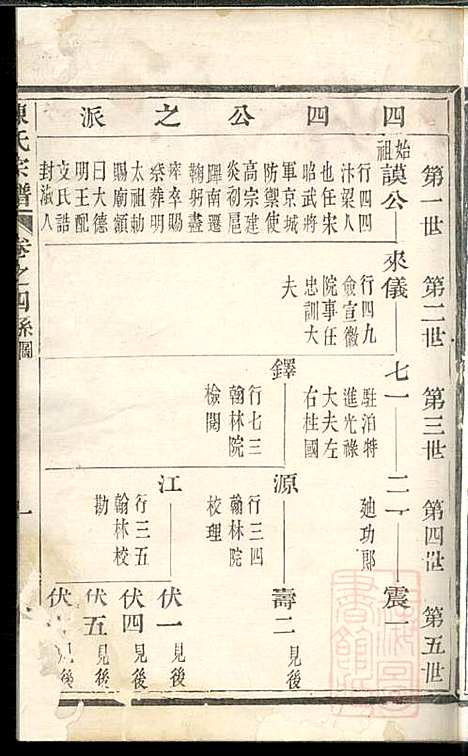 四四公之派
第一世
第二世
第三世
第四世
第五世
始祖
謨公
行四四
汴梁人
也任宋
昭武將
軍京城
防禦使
高宗建
炎初扈
蹕南遷
鞠躬盡
瘁卒賜
祭葬明
太祖勅
賜廟額
曰大德
明王配
文氏誥
封淑人
來儀
行四九
僉宣徽
院事任
忠訓大
夫
七一
駐泊特
進光祿
大夫左
右柱國
鐸
行七三
翰林院
檢閱
二一
廸功郎
源
行三四
翰林院
校理
江
行三五
翰林校
勘
震一
壽二
見後
伏一
見後
伏四
見後
伏五
見後
伏
見後
陳氏宗譜
卷之四系圖
一